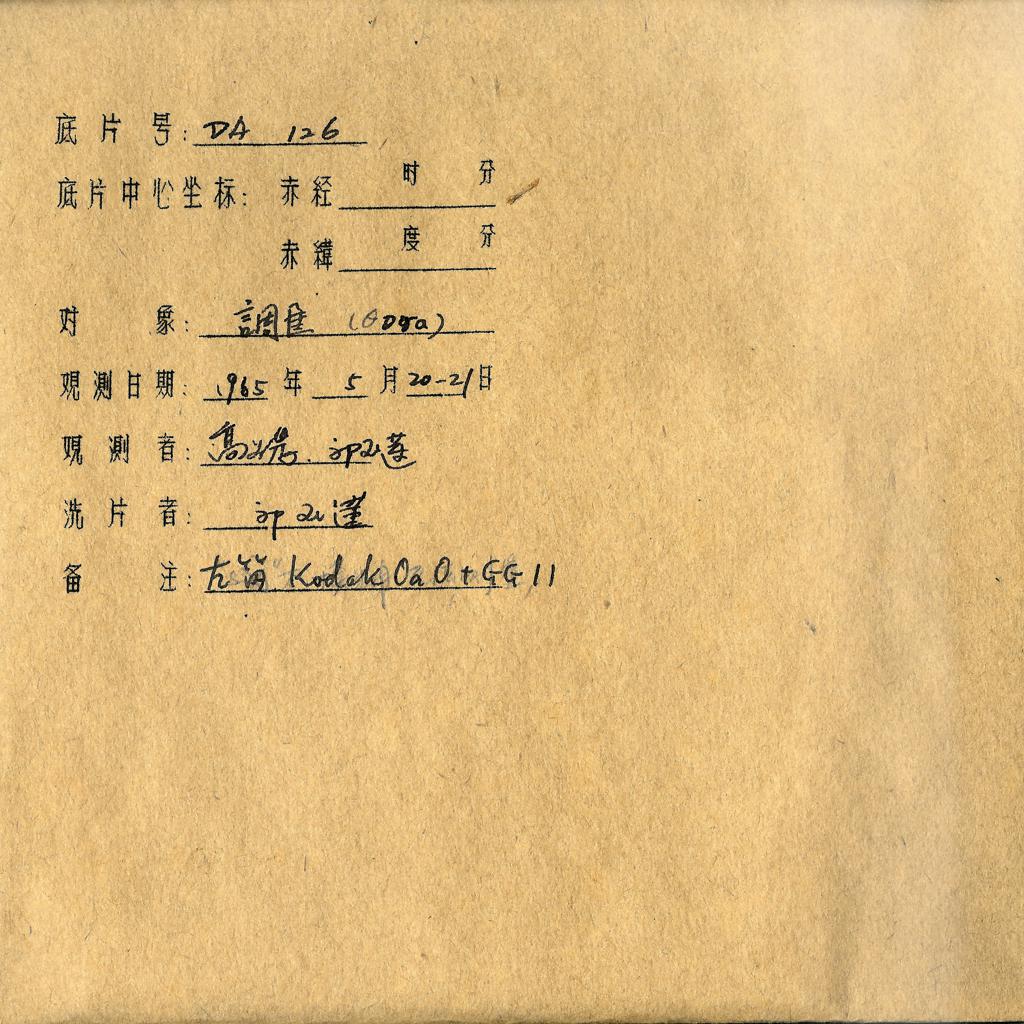 底片号: DA 126
底片中心坐标: 赤经 时 分
赤緯 度 分
对 象: 調焦 (θ Dra)
观测日期: 1965 年 5 月 20-21 日
观测者: 高
洗片者:
备 注: Kodak OaO + GG 11